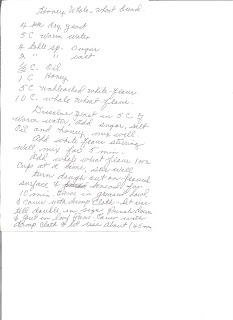 Honey Whole Wheat Bread
4 dry yeast
5 C warm water
4 table sp. sugar
2 " " salt
C. Oil
1 C Honey
5 C Unbleached white flour
10 C. whole wheat flour.
Dissolve yeast in 5 C of
warm water, add sugar, salt
Oil and honey, mix well
Add white flour stirring
well, mix for 5 min.
Add whole wheat flour one
cup at a time, stir well
turn dough out on floured
surface & knead for
10 min. turn in greased bowl
& cover with damp cloth - let rise
till double in size. Punch down
& put in loaf pans. Cover with
damp cloth & let rise about (45 min